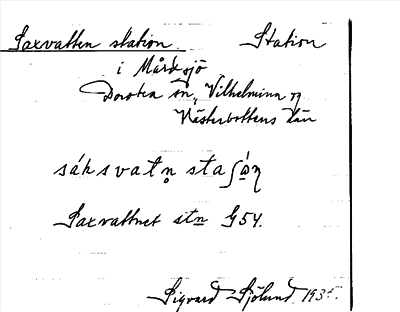 Saxvatten station. Station
i Mårdsjö
Dorotea sn, Vilhelmina
Västerbottens län
sáksvatn̥ staʃɷ́n
Saxvattnet stn G54.
Sigvard Sjölund 1935.